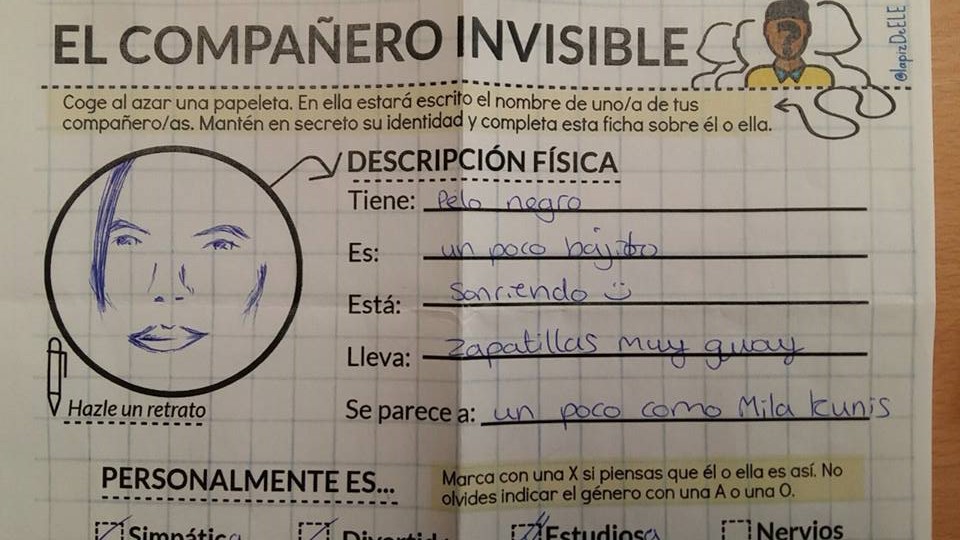 EL COMPAÑERO INVISIBLE
@lapizDeELE
Coge al azar una papeleta. En ella estará escrito el nombre de uno/a de tus
compañero/as. Mantén en secreto su identidad y completa esta ficha sobre él o ella.
DESCRIPCIÓN FÍSICA
Tiene: Pelo negro
Es: un poco bajito
Está: Sonriendo
Lleva: Zapatillas muy guay
Hazle un retrato
Se parece a: un poco como Mila Kunis
PERSONALMENTE ES...
Marca con una X si piensas que él o ella es así. No
olvides indicar el género con una A o una O.
Simpática Divertid Estudiosa Nervios